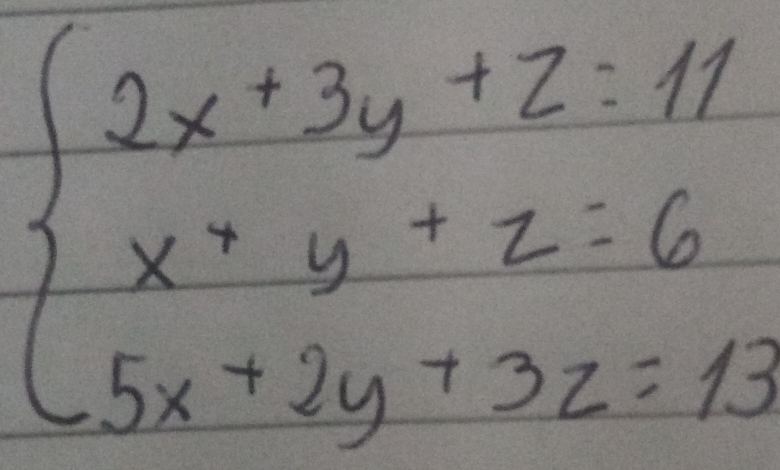 2x + 3y + z = 11
x + y + z = 6
5x + 2y + 3z = 13